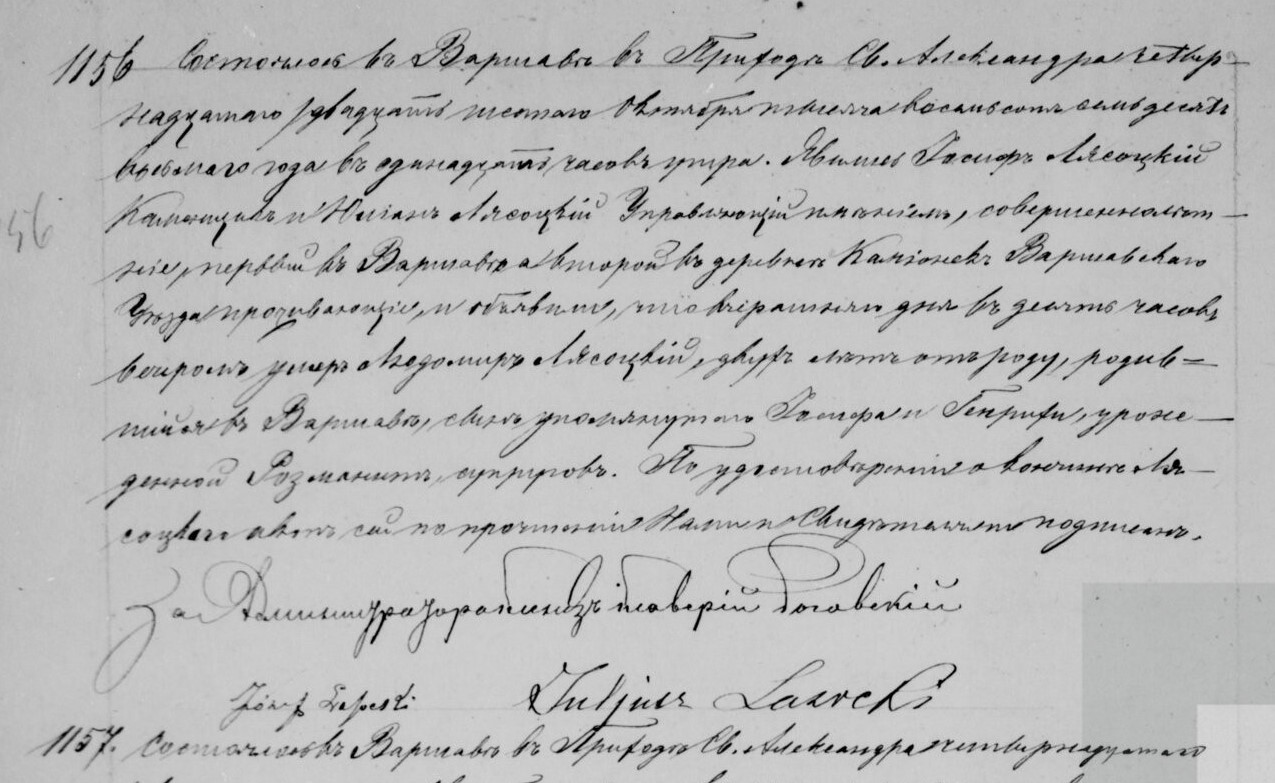 1156 Состоялось въ Варшавѣ въ Приходѣ Св. Александра четыр-
надцатаго /двадцать шестаго Октября тысяча восемьсотъ семьдесятъ
восьмаго года въ одинадцать часовъ утра. Явились Іосифъ Лясоцкій
и Лясоцкій Управляющій имѣніемъ, совершеннолѣт-
ніе, первый въ Варшавѣ а второй въ деревнѣ Варшавскаго
Уѣзда проживающіе, и объявили, что вчерашняго дня въ десять часовъ
вечеромъ умеръ Лясоцкій, двухъ лѣтъ отъ роду, родив-
шійся въ Варшавѣ, сынъ упомянутаго Іосифа и уроже-
денной супруговъ. По удостовѣреніи о кончинѣ Ля-
соцкаго актъ сей по прочтеніи Нами и Свидѣтелями подписанъ.
За Администратора
Józef Juljusz Lasocki
1157. Состоялось въ Варшавѣ въ Приходѣ Св. Александра четырнадцатаго
56